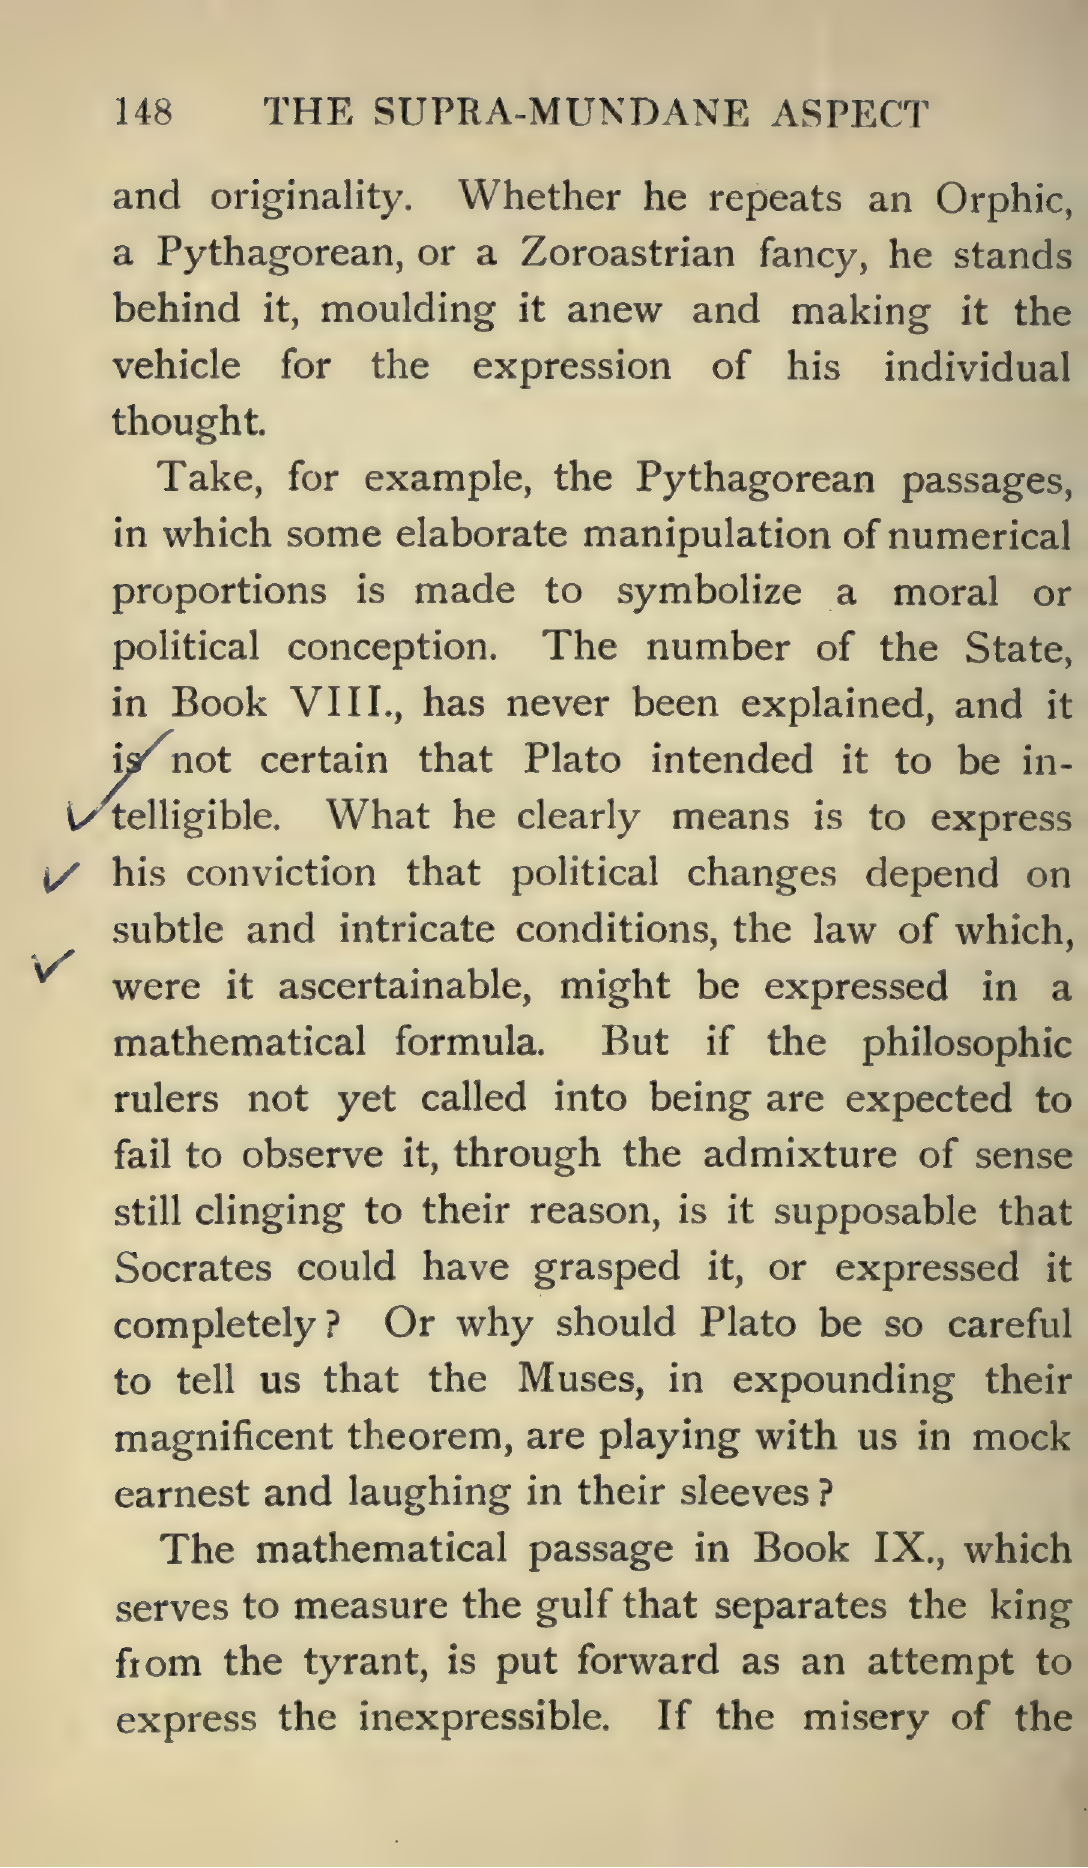 148 THE SUPRA-MUNDANE ASPECT
and originality. Whether he repeats an Orphic,
a Pythagorean, or a Zoroastrian fancy, he stands
behind it, moulding it anew and making it the
vehicle for the expression of his individual
thought.
Take, for example, the Pythagorean passages,
in which some elaborate manipulation of numerical
proportions is made to symbolize a moral or
political conception. The number of the State,
in Book VIII., has never been explained, and it
is not certain that Plato intended it to be in-
telligible. What he clearly means is to express
his conviction that political changes depend on
subtle and intricate conditions, the law of which,
were it ascertainable, might be expressed in a
mathematical formula. But if the philosophic
rulers not yet called into being are expected to
fail to observe it, through the admixture of sense
still clinging to their reason, is it supposable that
Socrates could have grasped it, or expressed it
completely? Or why should Plato be so careful
to tell us that the Muses, in expounding their
magnificent theorem, are playing with us in mock
earnest and laughing in their sleeves?
The mathematical passage in Book IX., which
serves to measure the gulf that separates the king
from the tyrant, is put forward as an attempt to
express the inexpressible. If the misery of the